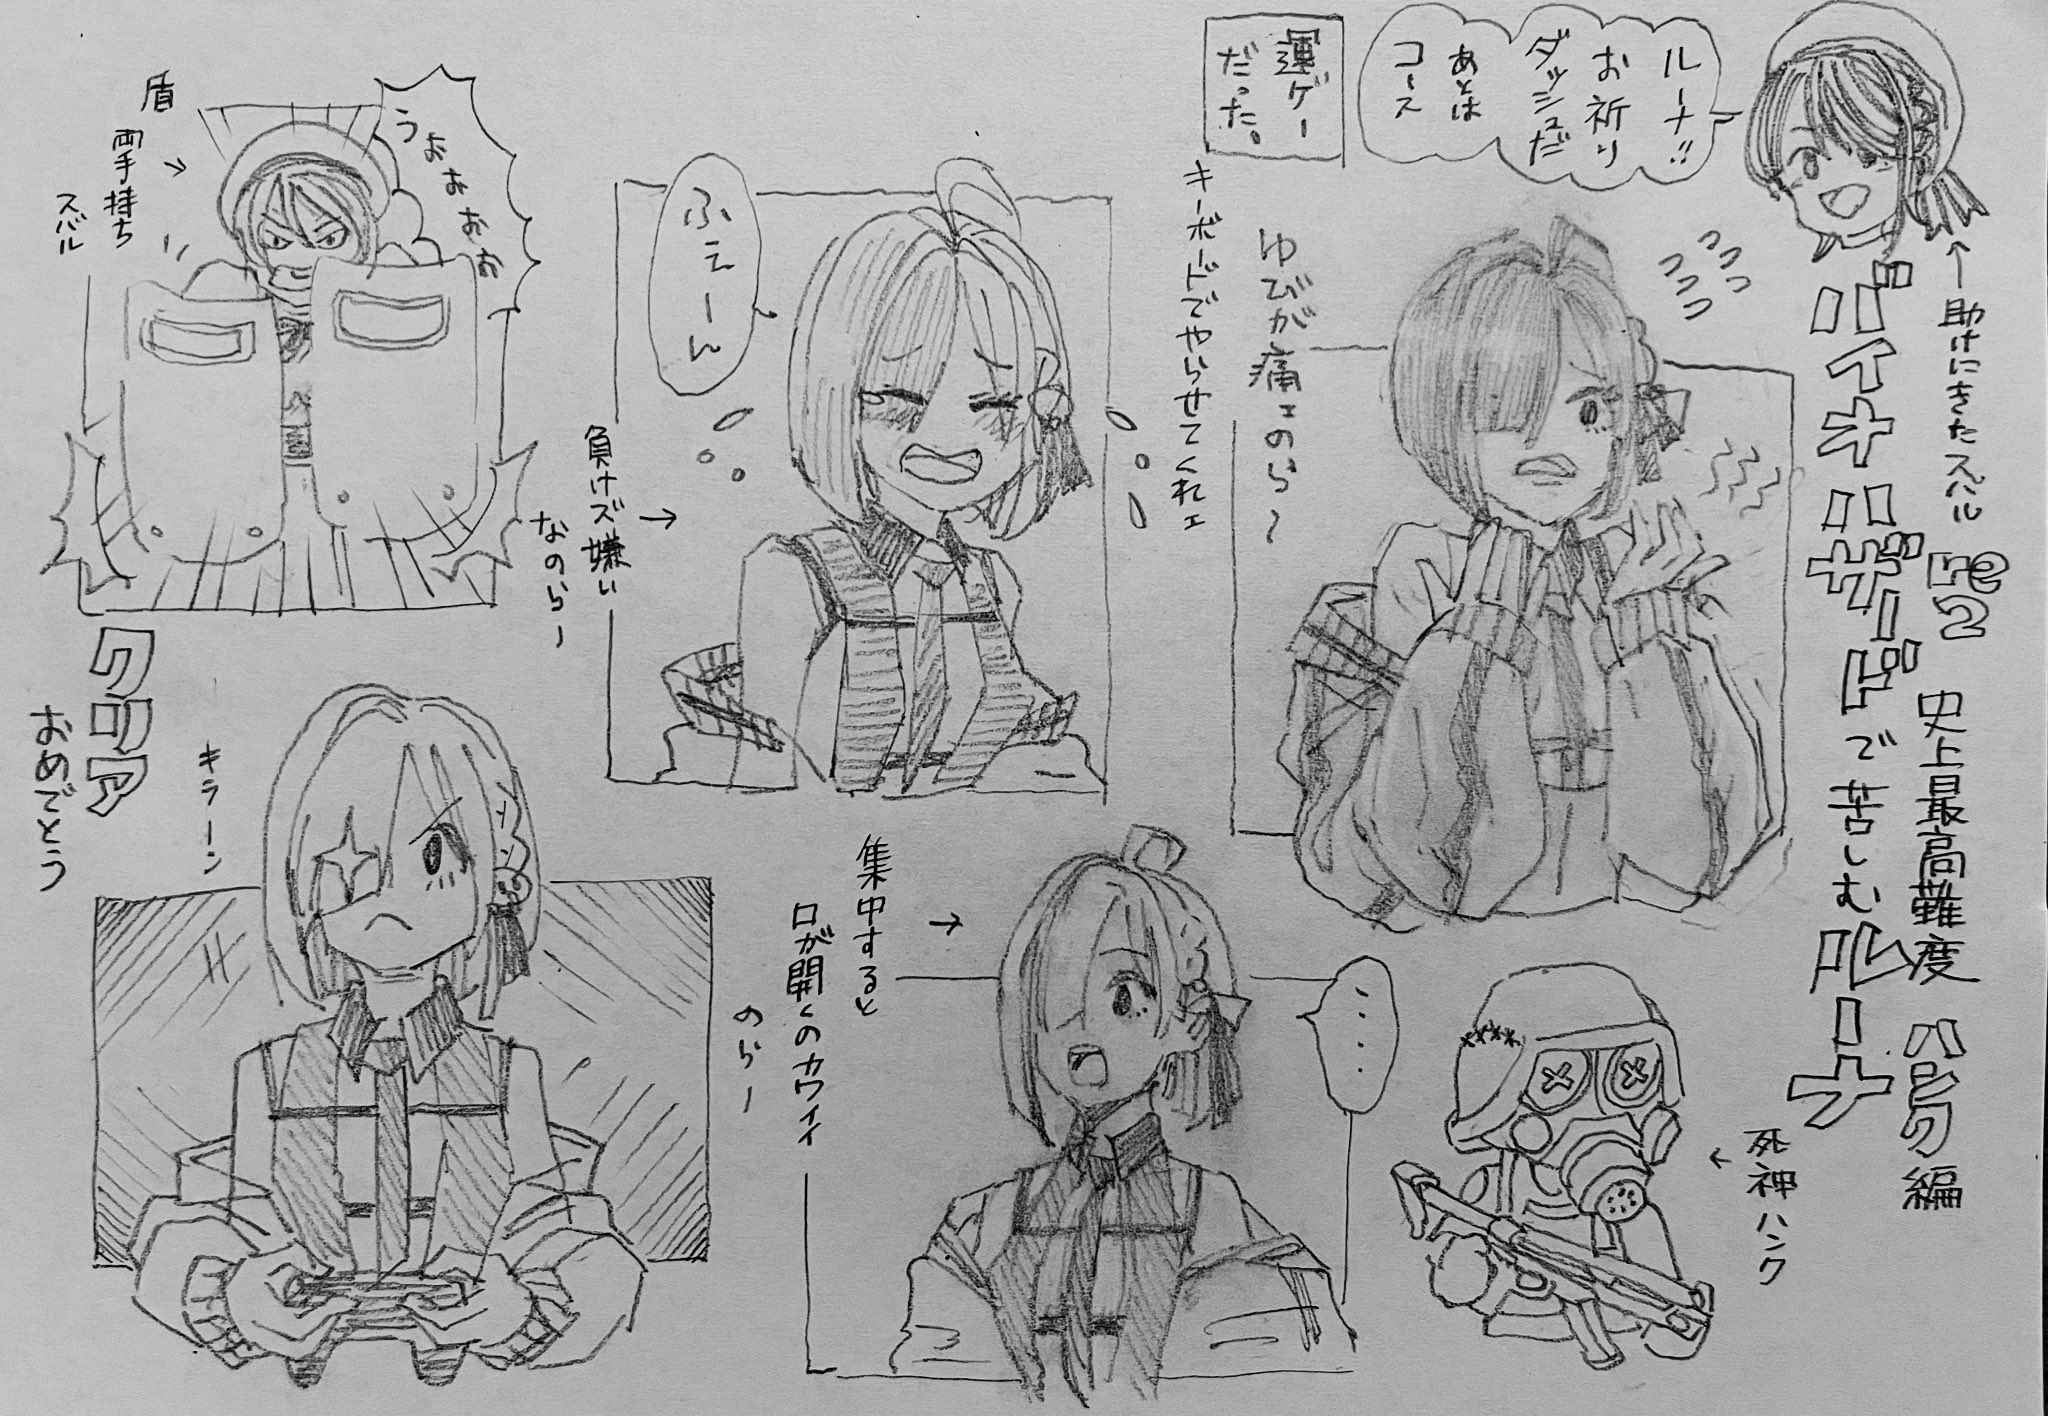 re2 史上最高難度 ハンク編
バイオハザードで苦しむルーナ
←助けにきたスバル
ルーナ!!
お祈り
ダッシュだ
あとは
コース
運ゲー
だった。
コココ
コココ
ゆびが痛ェのら〜
キーボードでやらせてくれェ
←死神ハンク
ふぇーん
負けズ嫌い→
なのらー
・・・
集中すると→
口が開くのカワイイ
のらー
うぉぉぉぉ
盾
両手持ち→
スバル
クリア
おめでとう
キラーン